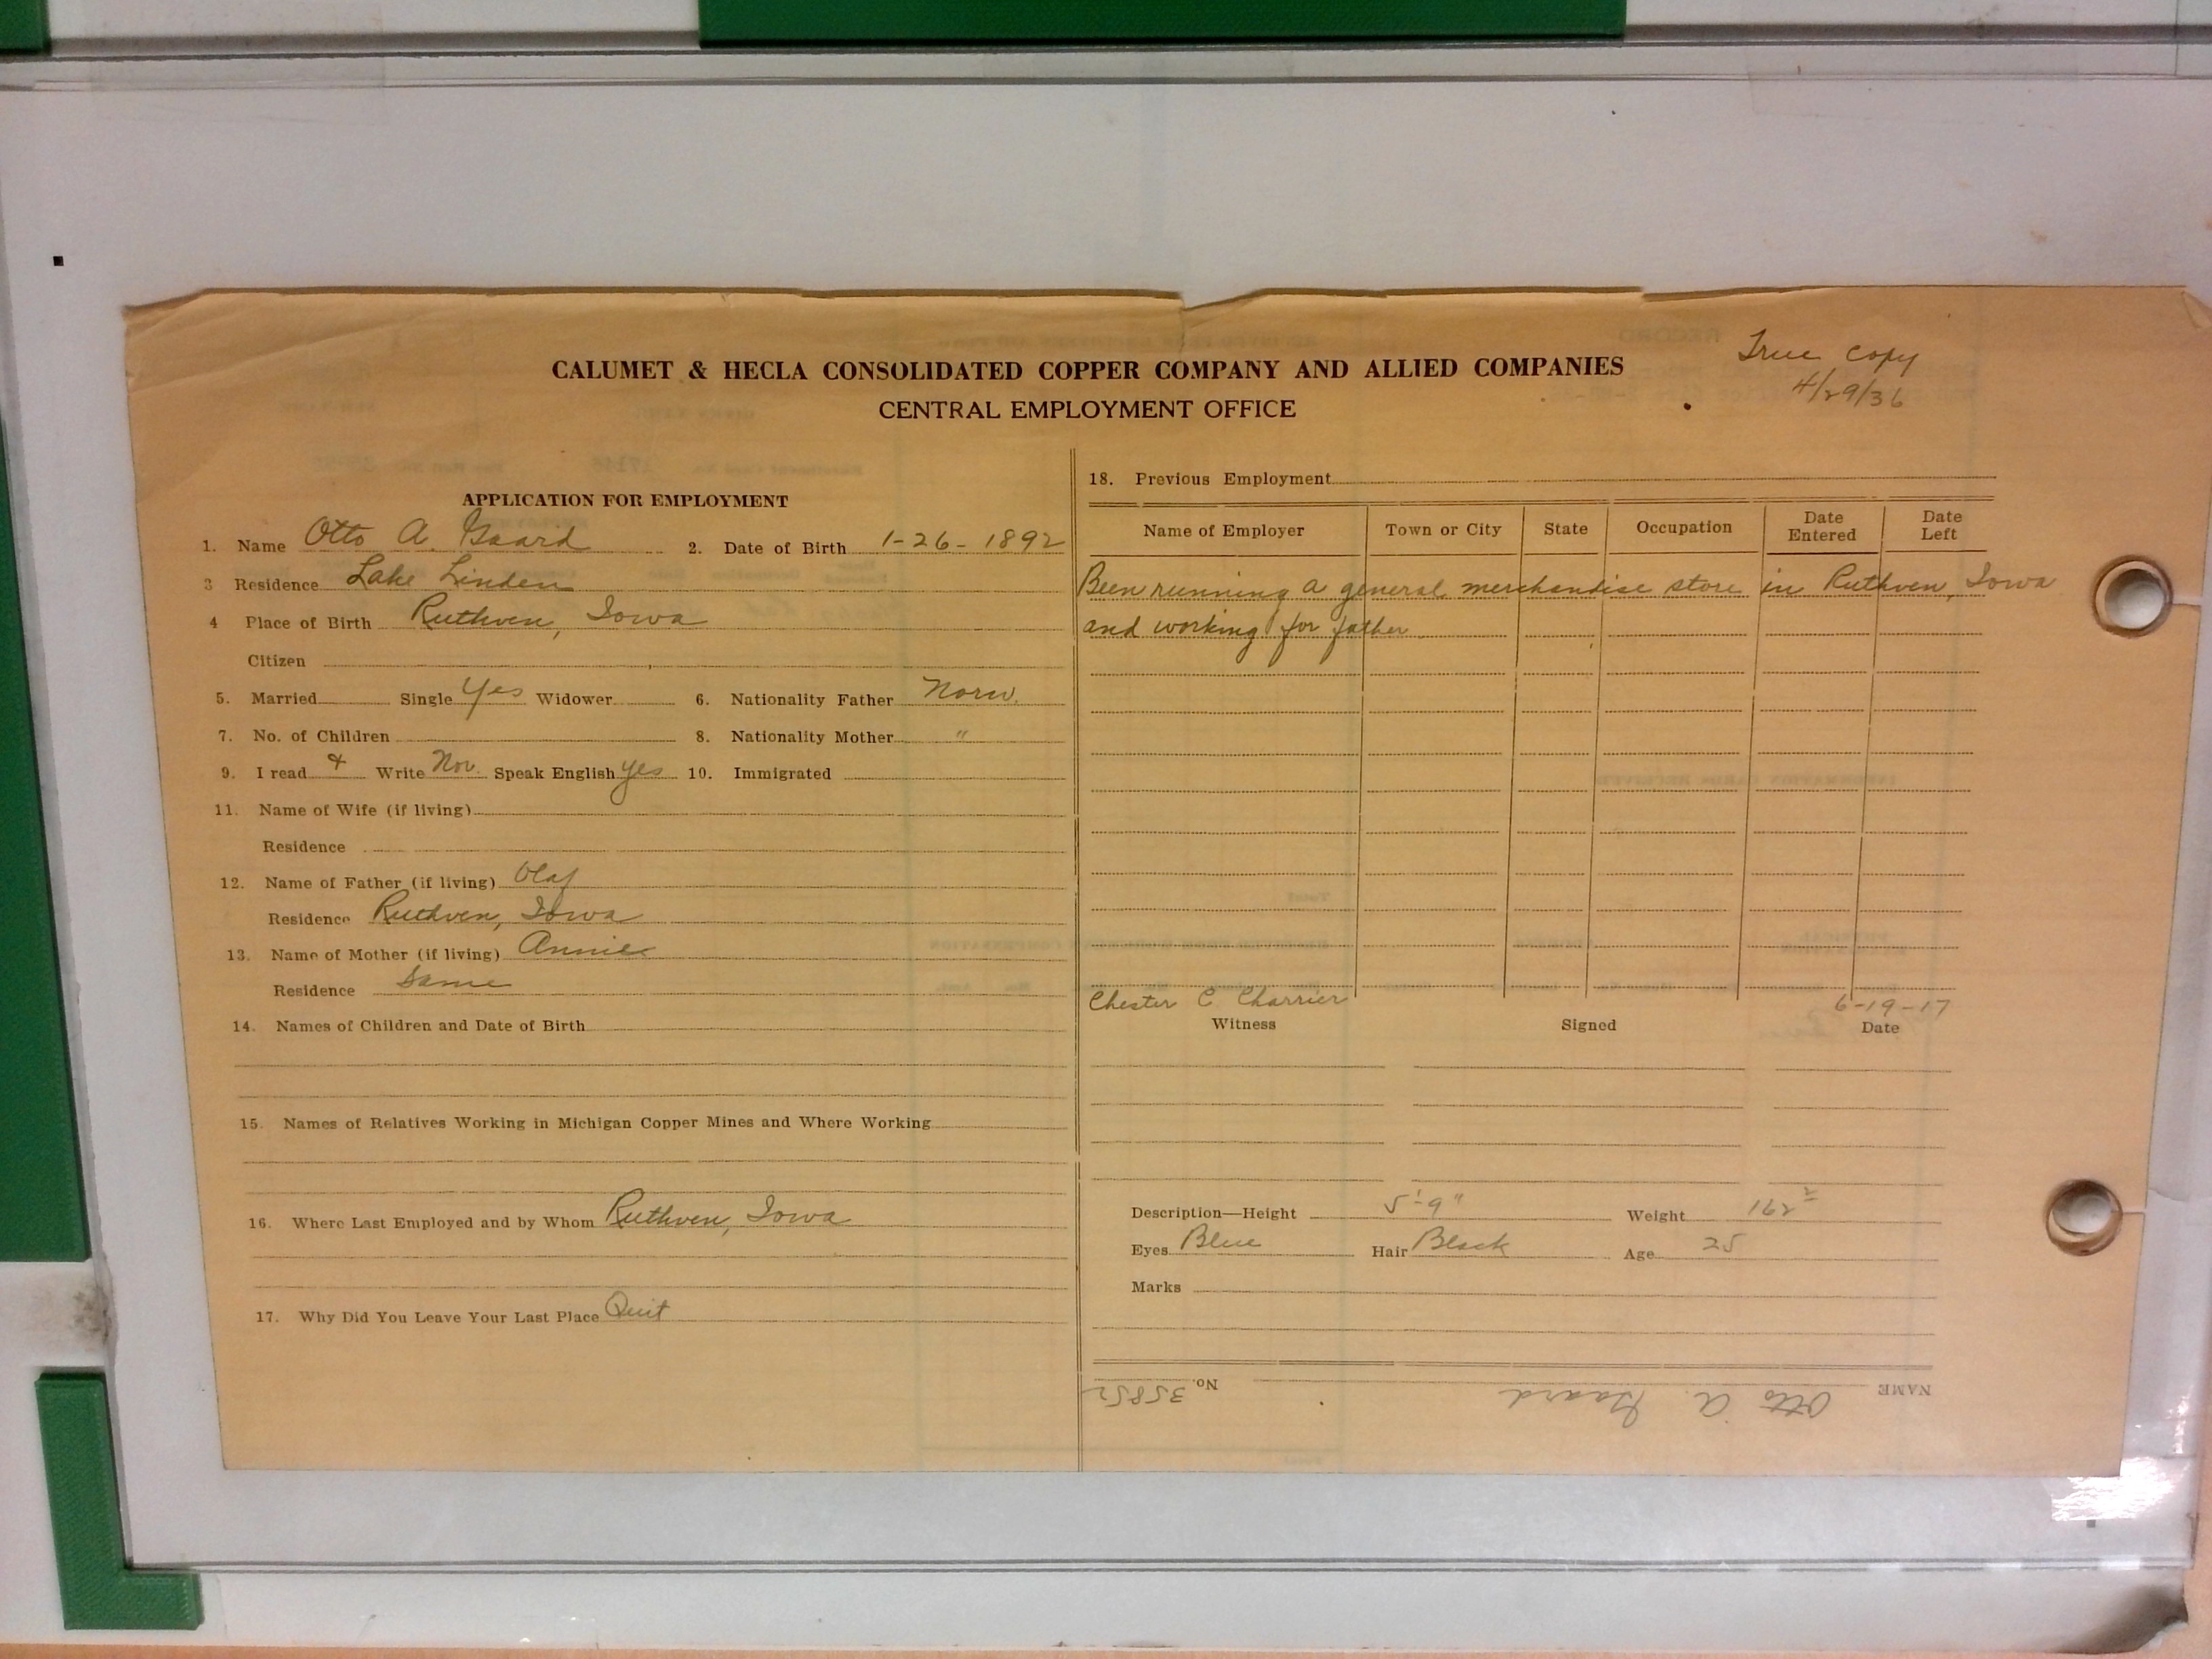 True Copy
4/29/36
CALUMET & HECLA CONSOLIDATED COPPER COMPANY AND ALLIED COMPANIES
CENTRAL EMPLOYMENT OFFICE
APPLICATION FOR EMPLOYMENT
1. Name Otto A. Gaard 2. Date of Birth 1-26-1892
3 Residence Lake Linden
4 Place of Birth Ruthven, Iowa
Citizen
5. Married Single Yes Widower 6. Nationality Father Norw.
7. No. of Children 8. Nationality Mother "
9. I read & Write Nor. Speak English yes 10. Immigrated
11. Name of Wife (if living)
Residence
12. Name of Father (if living) Olaf
Residence Ruthven, Iowa
13. Name of Mother (if living) Annie
Residence Same
14. Names of Children and Date of Birth
15. Names of Relatives Working in Michigan Copper Mines and Where Working
16. Where Last Employed and by Whom Ruthven, Iowa
17. Why Did You Leave Your Last Place Quit
18. Previous Employment
Name of Employer Town or City State Occupation Date Entered Date Left
Been running a general merchandise store in Ruthven, Iowa
and working for father
Chester C Charrier 6-19-17
Witness Signed Date
Description—Height 5'-9" Weight 162
Eyes Blue Hair Black Age 25
Marks
NAME Otto A. Gaard No. 35852